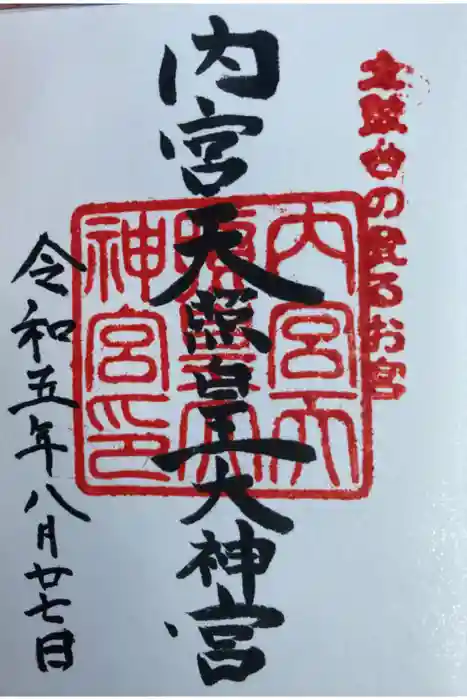 土俵台の見るお宮
内宮天照皇大神宮
内宮天照皇大神宮印
令和五年八月廿七日